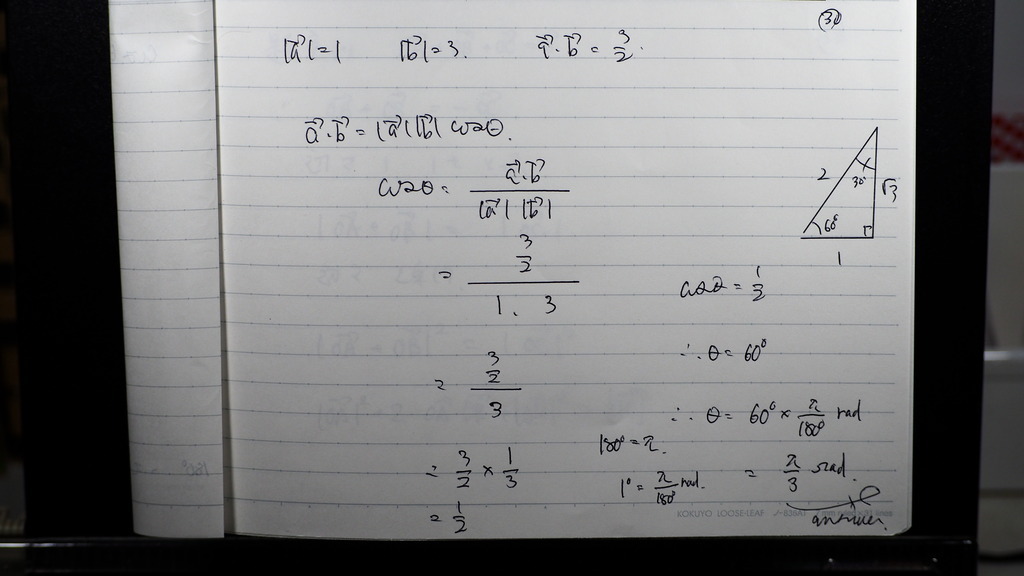 30
|a⃗|=1 |b⃗|=3. a⃗·b⃗ = 3/2.
a⃗·b⃗ = |a⃗||b⃗| cosθ.
cosθ = a⃗·b⃗ / |a⃗| |b⃗|
= 3/2 / 1. 3
= 3/2 / 3
= 3/2 × 1/3
= 1/2
2 30° √3
60°
1
cosθ = 1/2
∴ θ = 60°
∴ θ = 60° × π/180° rad
180° = π.
1° = π/180° rad.
= π/3 rad.
answer.
KOKUYO LOOSE-LEAF